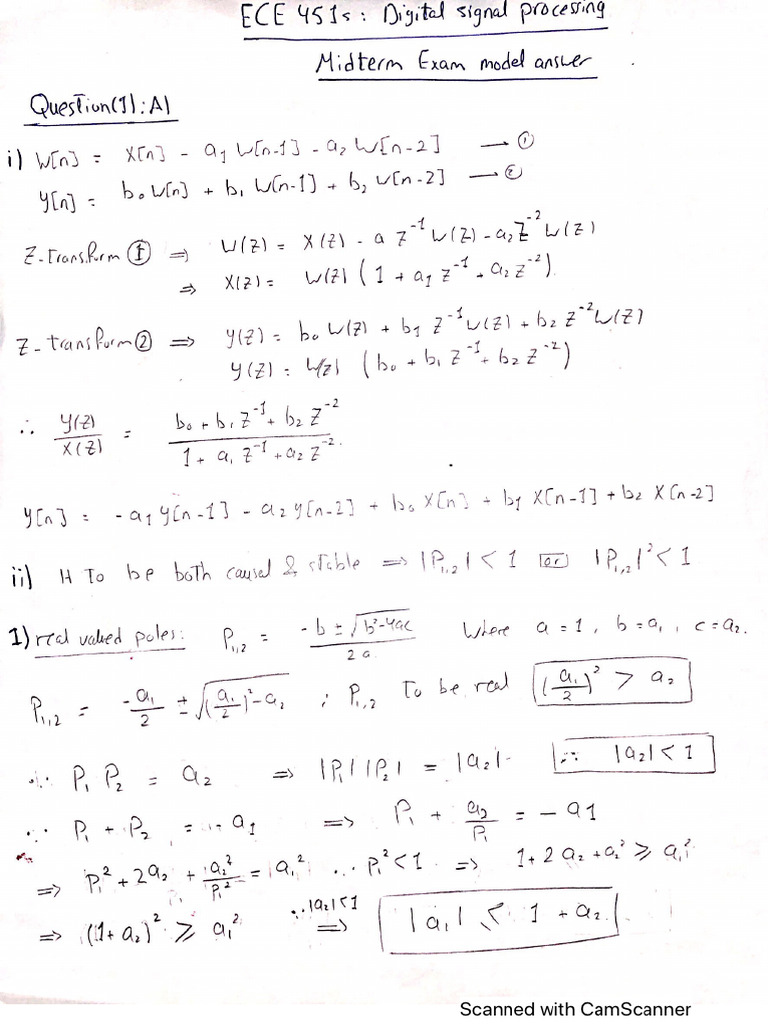 ECE 451s: Digital signal processing
Midterm Exam model answer
Question(1): A1
i) W[n] = X[n] - a₁ W[n-1] - a₂ W[n-2] → ①
y[n] = b₀ W[n] + b₁ W[n-1] + b₂ W[n-2] → ②
Z-transform ① ⇒ W(Z) = X(Z) - a Z⁻¹ W(Z) - a₂ Z⁻² W(Z)
⇒ X(Z) = W(Z) (1 + a₁ Z⁻¹ + a₂ Z⁻²).
Z-transform ② ⇒ Y(Z) = b₀ W(Z) + b₁ Z⁻¹ W(Z) + b₂ Z⁻² W(Z)
Y(Z) = W(Z) (b₀ + b₁ Z⁻¹ + b₂ Z⁻²)
∴ Y(Z)/X(Z) = (b₀ + b₁ Z⁻¹ + b₂ Z⁻²)/(1 + a₁ Z⁻¹ + a₂ Z⁻²)
y[n] = -a₁ y[n-1] - a₂ y[n-2] + b₀ X[n] + b₁ X[n-1] + b₂ X[n-2]
ii) H To be both causal & stable ⇒ |P₁,₂| < 1 or |P₁,₂|² < 1
1) real valued poles: P₁,₂ = (-b ± √(b²-4ac))/2a where a = 1, b = a₁, c = a₂.
P₁,₂ = -a₁/2 ± √((a₁/2)² - a₂) ; P₁,₂ To be real (a₁/2)² > a₂
∵ P₁ P₂ = a₂ ⇒ |P₁| |P₂| = |a₂| ∴ |a₂| < 1
∵ P₁ + P₂ = - a₁ ⇒ P₁ + a₂/P₁ = - a1
⇒ P₁² + 2a₂ + a₂²/P₁² = a₁² ∵ P₁² < 1 ⇒ 1 + 2a₂ + a₂² ≥ a₁²
⇒ (1 + a₂)² ≥ a₁² ∵ |a₂| < 1 ⇒ |a₁| < 1 + a₂
Scanned with CamScanner